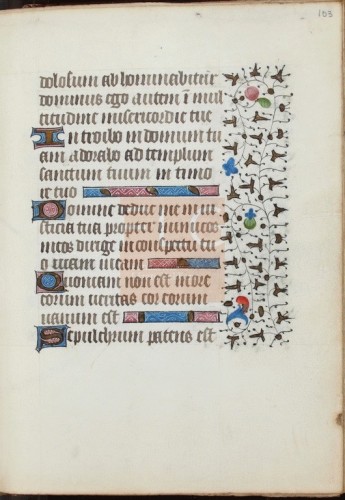 103
dolosum abhominabitur
dominus Ego autem ī mul
titudine misericordie tue
Introibo in domum tu
am adorabo ad templum
sanctum tuum in timo
re tuo
Domine deduc me in iu
sticia tua propter inimicos
meos dirige in conspectu tu
o uiam meam
Quoniam non est in ore
eorum ueritas cor eorum
uanum est
Sepulchrum patens est